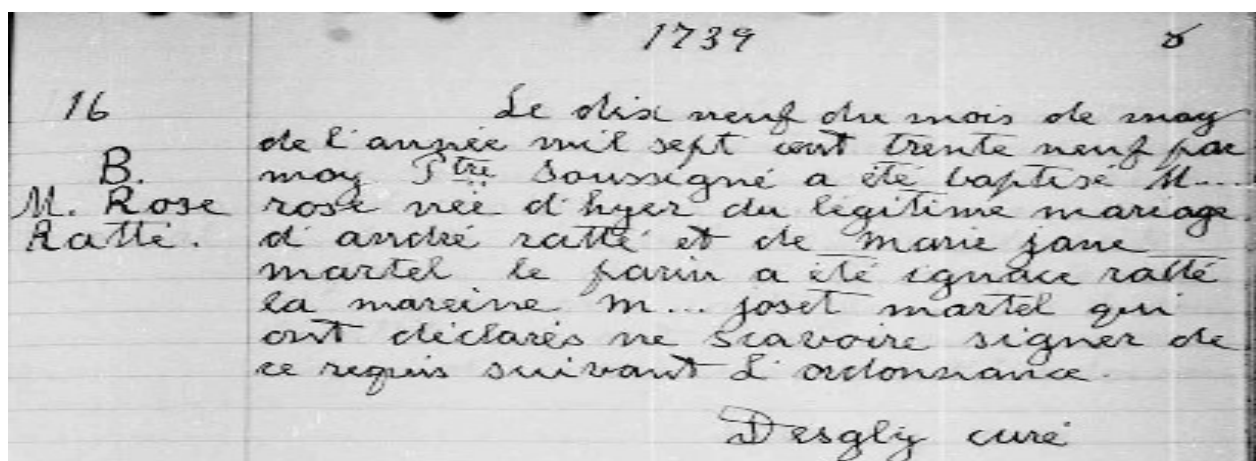 1739
16
Le dix neuf du mois de may
de l'année mil sept cent trente neuf par
B.
moy Ptre Soussigné a été baptisé M....
M. Rose
rose née d'hyer du légitime mariage
Ratté.
d'andré ratté et de marie jane
martel le parin a été ignace ratté
la mareine m... joset martel qui
ont déclarés ne scavoire signer de
ce requis suivant L'ordonnance.
Desgly curé